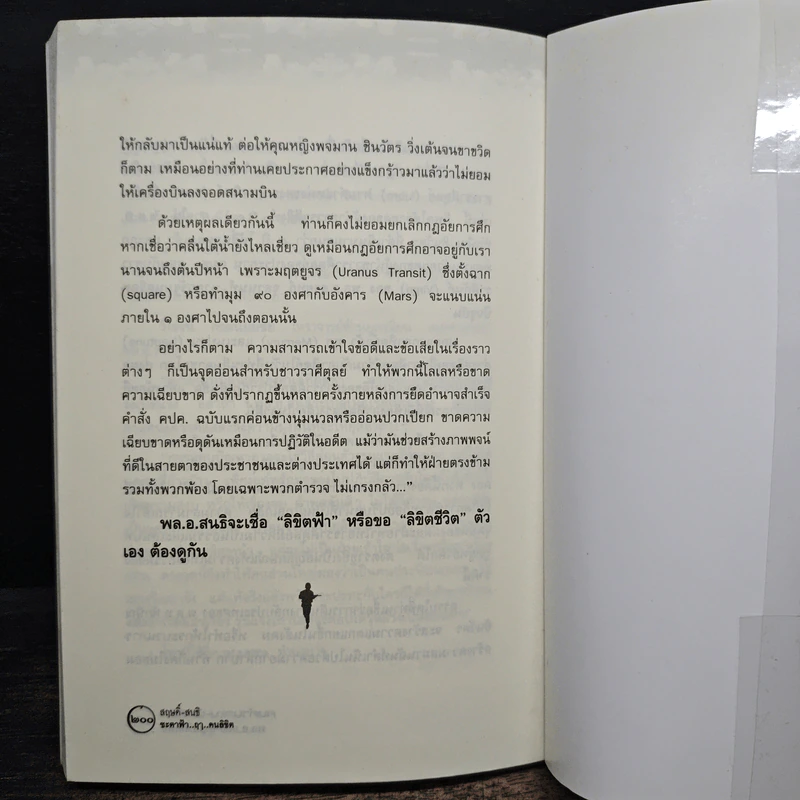 ให้กลับมาเป็นแน่แท้ ต่อให้คุณหญิงพจมาน ชินวัตร วิ่งเต้นจนขาขวิด
ก็ตาม เหมือนอย่างที่ท่านเคยประกาศอย่างแข็งกร้าวมาแล้วว่าไม่ยอม
ให้เครื่องบินลงจอดสนามบิน
ด้วยเหตุผลเดียวกันนี้ ท่านก็คงไม่ยอมยกเลิกกฎอัยการศึก
หากเชื่อว่าคลื่นใต้น้ำยังไหลเชี่ยว ดูเหมือนกฎอัยการศึกอาจอยู่กับเรา
นานจนถึงต้นปีหน้า เพราะมฤตยูจร (Uranus Transit) ซึ่งตั้งฉาก
(square) หรือทำมุม ๙๐ องศากับอังคาร (Mars) จะแนบแน่น
ภายใน ๑ องศาไปจนถึงตอนนั้น
อย่างไรก็ตาม ความสามารถเข้าใจข้อดีและข้อเสียในเรื่องราว
ต่างๆ ก็เป็นจุดอ่อนสำหรับชาวราศีตุลย์ ทำให้พวกนี้โลเลหรือขาด
ความเฉียบขาด ดั่งที่ปรากฏขึ้นหลายครั้งภายหลังการยึดอำนาจสำเร็จ
คำสั่ง คปค. ฉบับแรกค่อนข้างนุ่มนวลหรืออ่อนปวกเปียก ขาดความ
เฉียบขาดหรือดุดันเหมือนการปฏิวัติในอดีต แม้ว่ามันช่วยสร้างภาพพจน์
ที่ดีในสายตาของประชาชนและต่างประเทศได้ แต่ก็ทำให้ฝ่ายตรงข้าม
รวมทั้งพวกพ้อง โดยเฉพาะพวกตำรวจ ไม่เกรงกลัว..."
พล.อ.สนธิจะเชื่อ "ลิขิตฟ้า" หรือขอ "ลิขิตชีวิต" ตัว
เอง ต้องดูกัน
๒๐๐
สฤษดิ์-สนธิ
ชะตาฟ้า..ฤๅ..คนลิขิต